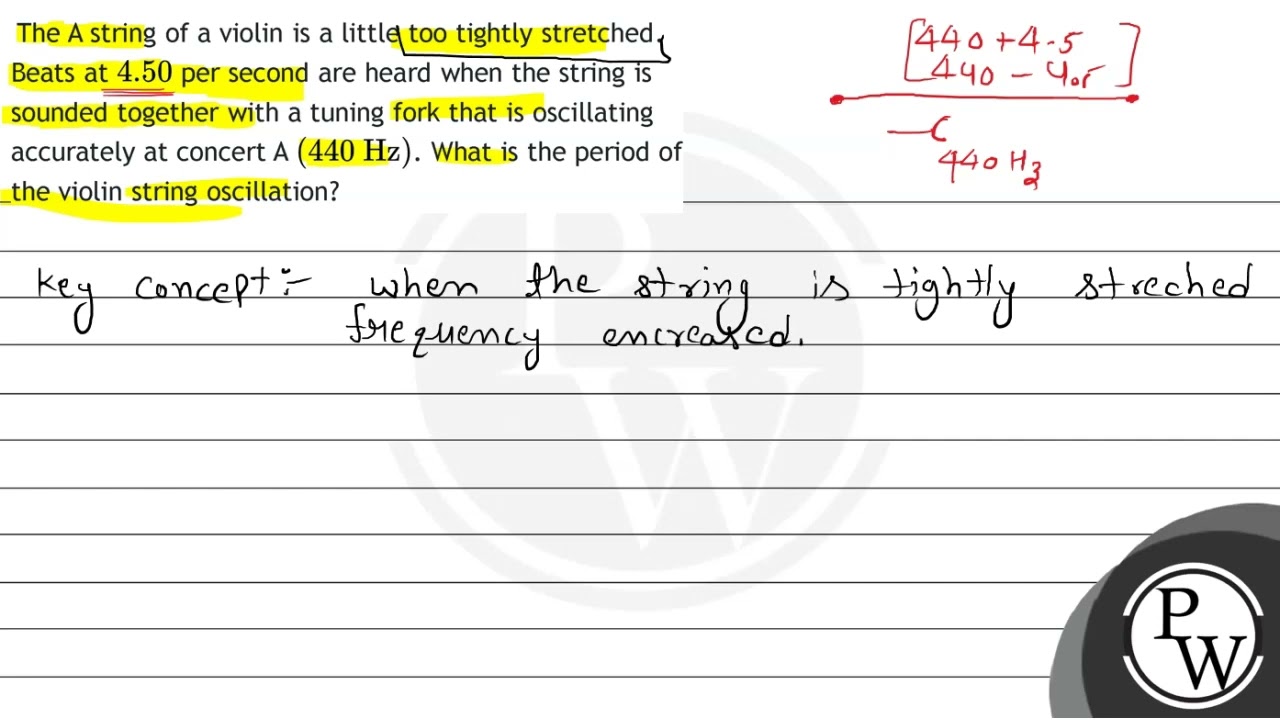 The A string of a violin is a little too tightly stretched.
Beats at 4.50 per second are heard when the string is
sounded together with a tuning fork that is oscillating
accurately at concert A (440 Hz). What is the period of
the violin string oscillation?
440+4.5
440-4.5
440 Hz
Key concept:- when the string is tightly streched
frequency encreased.
P
W
PW